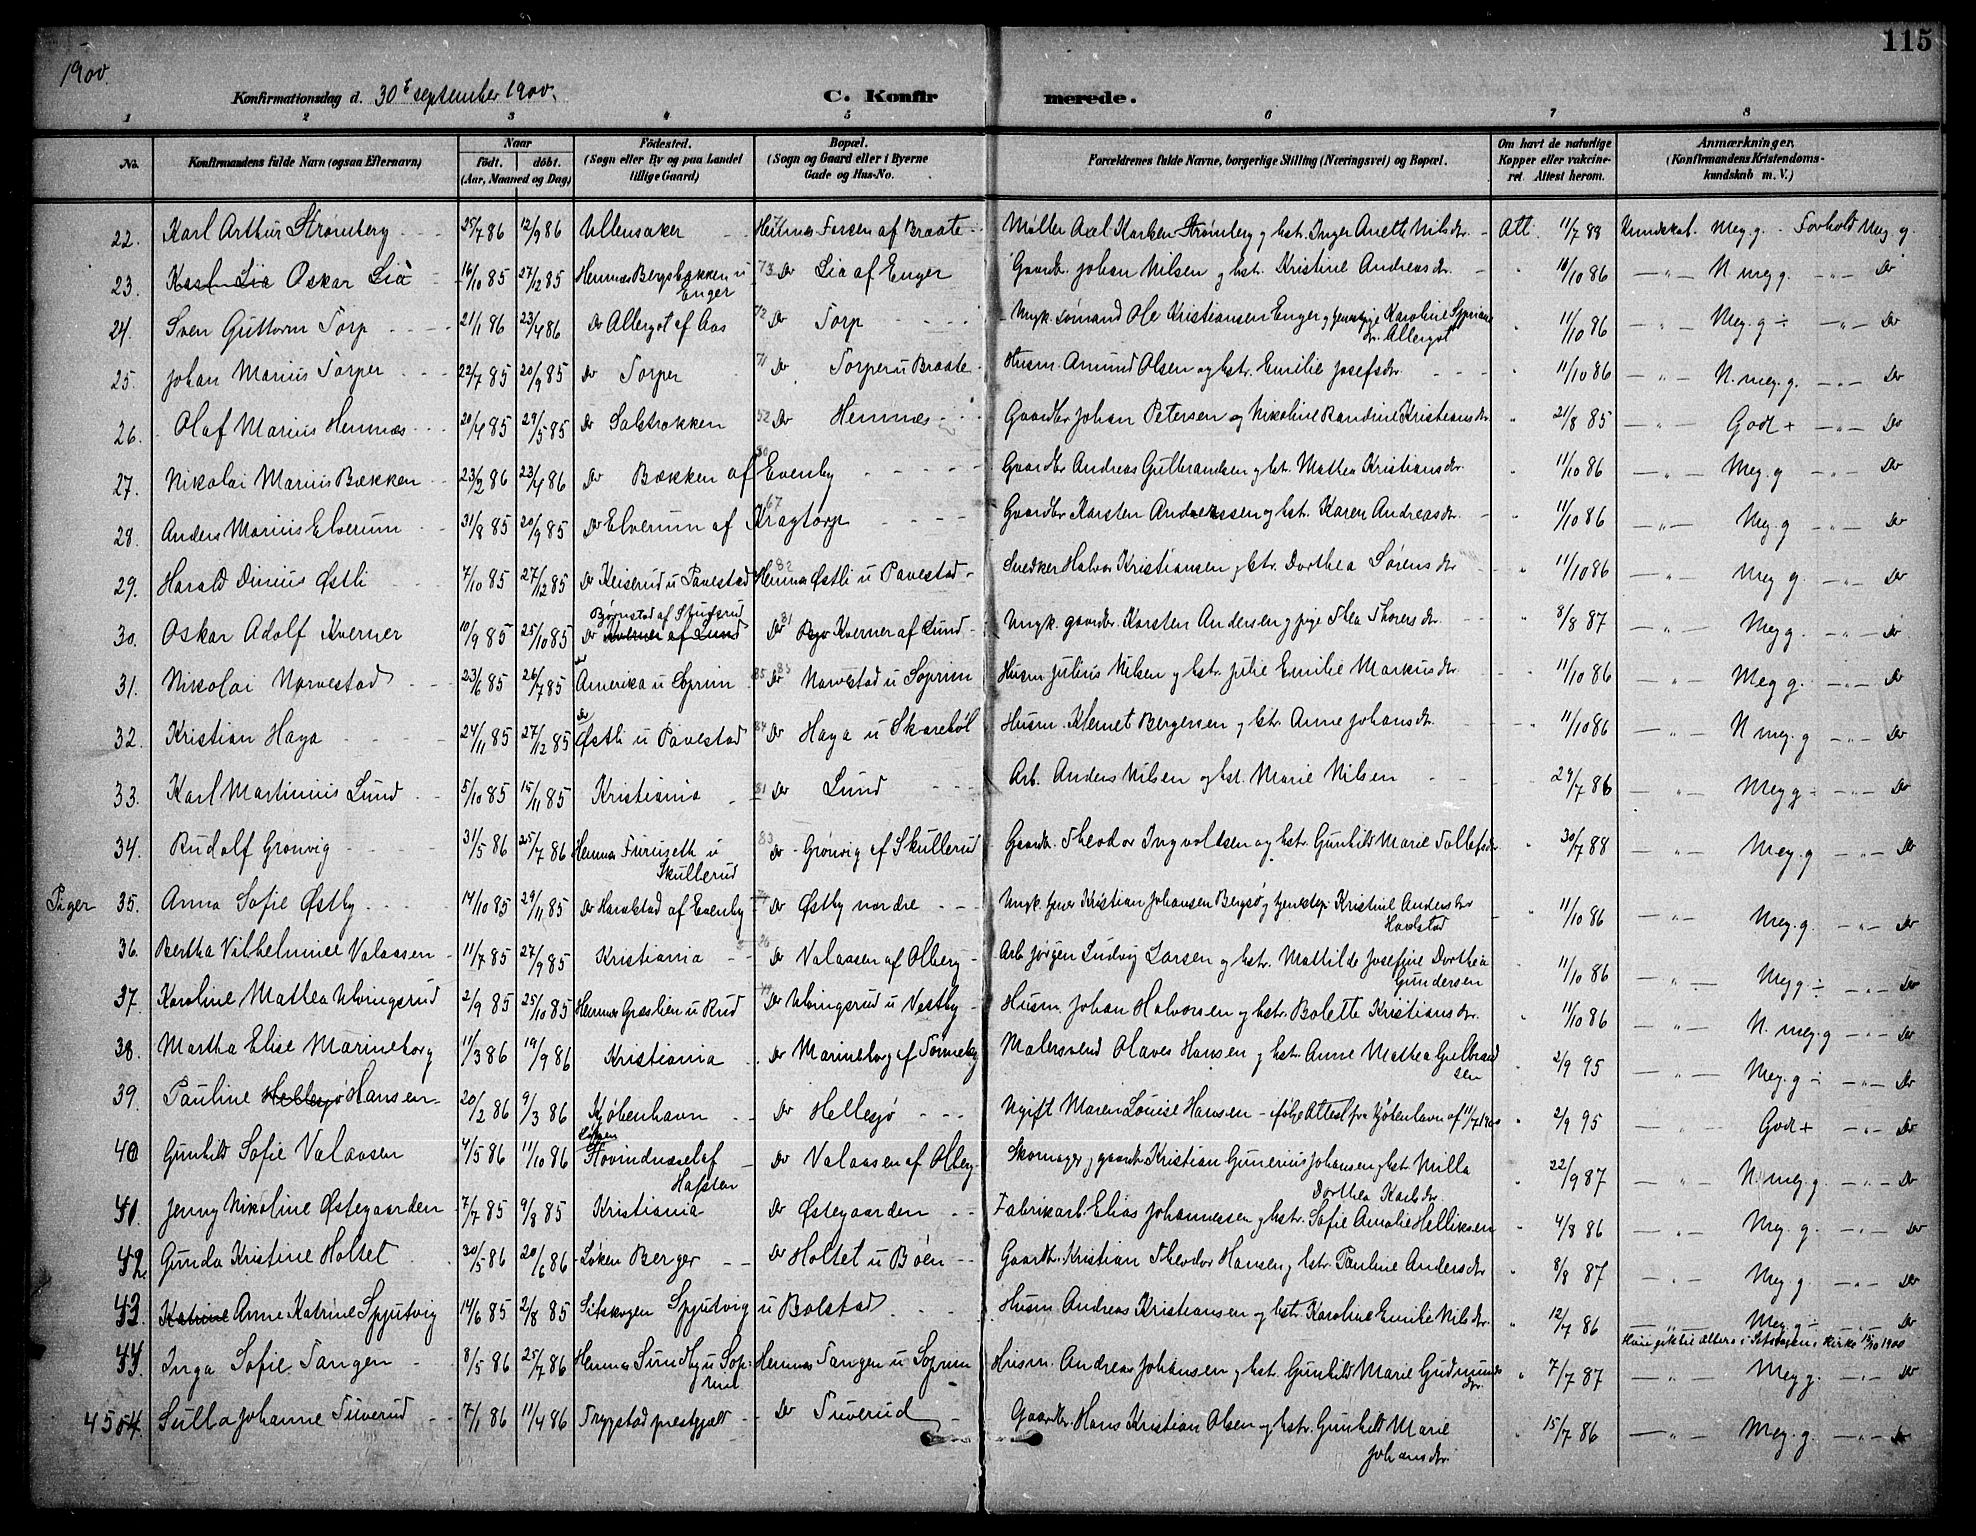 115
1900.
Konfirmationsdag d. 30te september 1900. C. Konfir merede.
1 2 3 4 5 6 7 8
No. Konfirmandens fulde Navn (ogsaa Efternavn) Naar født. døbt. (Aar, Maaned og Dag) Fødested. (Sogn eller By og paa Landet tillige Gaard) Bopæl. (Sogn og Gaard eller i Byerne Gade og Hus-No. Forældrenes fulde Navne, borgerlige Stilling (Næringsvei) og Bopæl. Om havt de naturlige Kopper eller vakcineret. Attest herom. Anmærkninger. (Konfirmandens Kristendomskundskab m. V.)
22. Karl Arthur Strømberg 25/7 86 12/9 86 Ullensaker Hemnes Forsen af Braate Møller Axel Karlsen Strømberg g hst. Inger Anette Nilsdr. Att. 11/7 88 Kundskab. Meg. g. Forhold Meg. g.
23. Karl Lia Oskar Lia 16/10 85 27/12 85 Hemnes Bergsbakken u Enger 73 Do Lia af Enger Gaardbr. Johan Nilsen g hst. Kristine Andreasdr. " 10/10 86 — " — N. meg g. — " — Do
24. Sven Guttorm Torp 21/1 86 23/4 86 Do Allergot af Aas 72 Do Torp Ungk. sømand Ole Kristiansen Enger g Karoline Sypriansdr. Allergot " 11/10 86 — " — Meg. g ÷ — " — Do
25. Johan Marius Torper 22/7 85 20/9 85 Do Torper 71 Do Torper u Braate Husm. Amund Olsen og hst. Emilie Josefsdr " 11/10 86 — " — N. meg. g. — " — Do
26. Olaf Marius Hemnæs 20/4 85 29/5 85 Do Salstrokken 52 Do Hemnæs Gaardbr Johan Petersen og Nikoline Randine Kristiansdr " 21/8 85 — " — Godt + — " — Do
27. Nikolai Marius Bækken 23/2 86 23/4 86 Do Bækken af Evenby Gaardbr Andreas Gulbrandsen g hst. Mathea Kristiansdr. " 11/10 86 — " — Meg. g — " — Do
28. Anders Marius Elverum 31/8 85 20/9 85 Do Elverum af Kragtorp 67 Gaardbr Karsten Anderssen og hst. Karen Andreasdr. " 11/10 86 — " — Meg. g — " — Do
29. Harald Dinius Østli 7/10 85 27/12 85 Do Keiserud u Pavestad 82 Hemnes Østli u Pavestad Snedker Halvor Kristiansen g hst. Dorthea Sørensdr " 11/10 86 — " — Meg g. — " — Do
30. Oskar Adolf Kverner 10/9 85 25/10 85 Do Kverner af Lund Bjørnstad af Spugsrud Do 81 Kverner af Lund Ungk. gaardbr. Karsten Andersen g pige Thea Thoresdr. 8/8 87 — " — Meg g. — " — Do
31. Nikolai Narvestad 23/6 85 26/7 85 Do Amerika u Soprim 85 Do Narvestad u Soprim Husm Julius Nilsen g hst. Julie Emilie Markusdr. " 11/10 86 — " — Meg g. — " — Do
32. Kristian Haga 24/11 85 27/12 85 Do Østli u Pavestad 84 Do Haga u Skarebøl Husm. Klemet Bergersen g hst. Anne Johansdr. " 11/10 86 — " — N meg. g — " — Do
33. Karl Martinius Lund 5/10 85 15/11 85 Kristiania 81 Do Lund Arb. Anders Nilsen og hst. Marie Nilsen 29/7 86 — " — Meg g — " — Do
34. Rudolf Grønvig 31/5 86 25/7 86 Hemnes Furuseth u Skullerud 83 Do Grønvig af Skullerud Gaardbr. Theodor Ingvoldsen og hst. Gunhild Marie Tollefsdr " 30/7 88 — " — Meg. g — " — Do
Piger 35. Anna Sofie Østby 14/10 85 29/11 85 Do Haralstad af Evenby Do Østby nordre Ungk. Kristian Johansen Bergsø g Kristine Andersdr Haralstad " 11/10 86 — " — Meg. g. — " — Do
36. Bertha Vilhelmine Valaasen 11/7 85 27/9 85 Kristiania 26 Do Valaasen af Olberg Arb Jørgen Ludvig Larsen g hst. Mattilde Josefine Dorthea Gundersen " 11/10 86 — " — Meg g ÷ — " — Do
37. Karoline Mathea Ulvingsrud 2/9 85 25/10 85 Hemnes Græslien u Rud Do Ulvingsrud u Vestby Husm. Johan Halvorsen og hst. Bolette Kristiansdr. " 11/10 86 — " — N. meg. g — " — Do
38. Martha Elise Marineborg 11/3 86 19/9 86 Kristiania Do Marineborg af Tønneby Malersvend Olaves Hansen g hst. Anne Mathea Gulbrandsen 2/9 95 — " — Meg. g ÷ — " — Do
39. Pauline Hellesjø Hansen 20/2 86 9/3 86 Kjøbenhavn Do Hellesjø Ugift Maren Louise Hansen - ifølge Attest fra Kjøbenhavn af 11/7 1900 " 2/9 95 — " — Godt + — " — Do
40 Gunhild Sofie Valaasen 4/5 86 11/10 86 Løken Hovindnæsel af Hafsten Do Valaasen af Olberg Skomager g gaardbr Kristian Gunerius Johansen g hst. Milla Dorthea Karlsdr. " 22/9 87 — " — N. meg. g — " — Do
41. Jenny Nikoline Østegaarden 7/7 85 9/8 85 Kristiania Do Østegaarden Fabrikarb. Elias Johannessen g hst. Sofie Amalie Helliksen " 4/8 86 — " — Meg. g — " — Do
42. Gunda Kristine Holtet 30/5 86 20/6 86 Løken Berger Do Holtet u Bøen Gaardbr. Kristian Theodor Hansen g hst. Pauline Andersdr " 8/8 87 — " — Meg g. — " — Do
43. Katrine Anne Katrine Spjutvig 14/6 85 2/8 85 Setskogen Spjutvig u Bolstad Husm. Andreas Kristiansen g hst. Karoline Emilie Nilsdr. " 12/7 86 — " — Meg. g ÷ — " — Do
Hun gik til Alters i Setskogens Kirke 14/10 1900
44. Inga Sofie Tangen 8/5 86 25/7 86 Hemnes Sundby u Soprim Hemnes Tangen u Soprim Husm. Andreas Johansen g hst. Gunhild Marie Gudmundsdr. " 7/7 87 — " — Meg g. — " — Do
45 Sulla Johanne Tuverud 7/1 86 11/4 86 Trygstad prestegjæld Do Tuverud Gaardbr. Hans Kristian Olsen og hst. Gunhild Marie Johansdr. " 15/7 86 — " — Meg. g. — " — Do